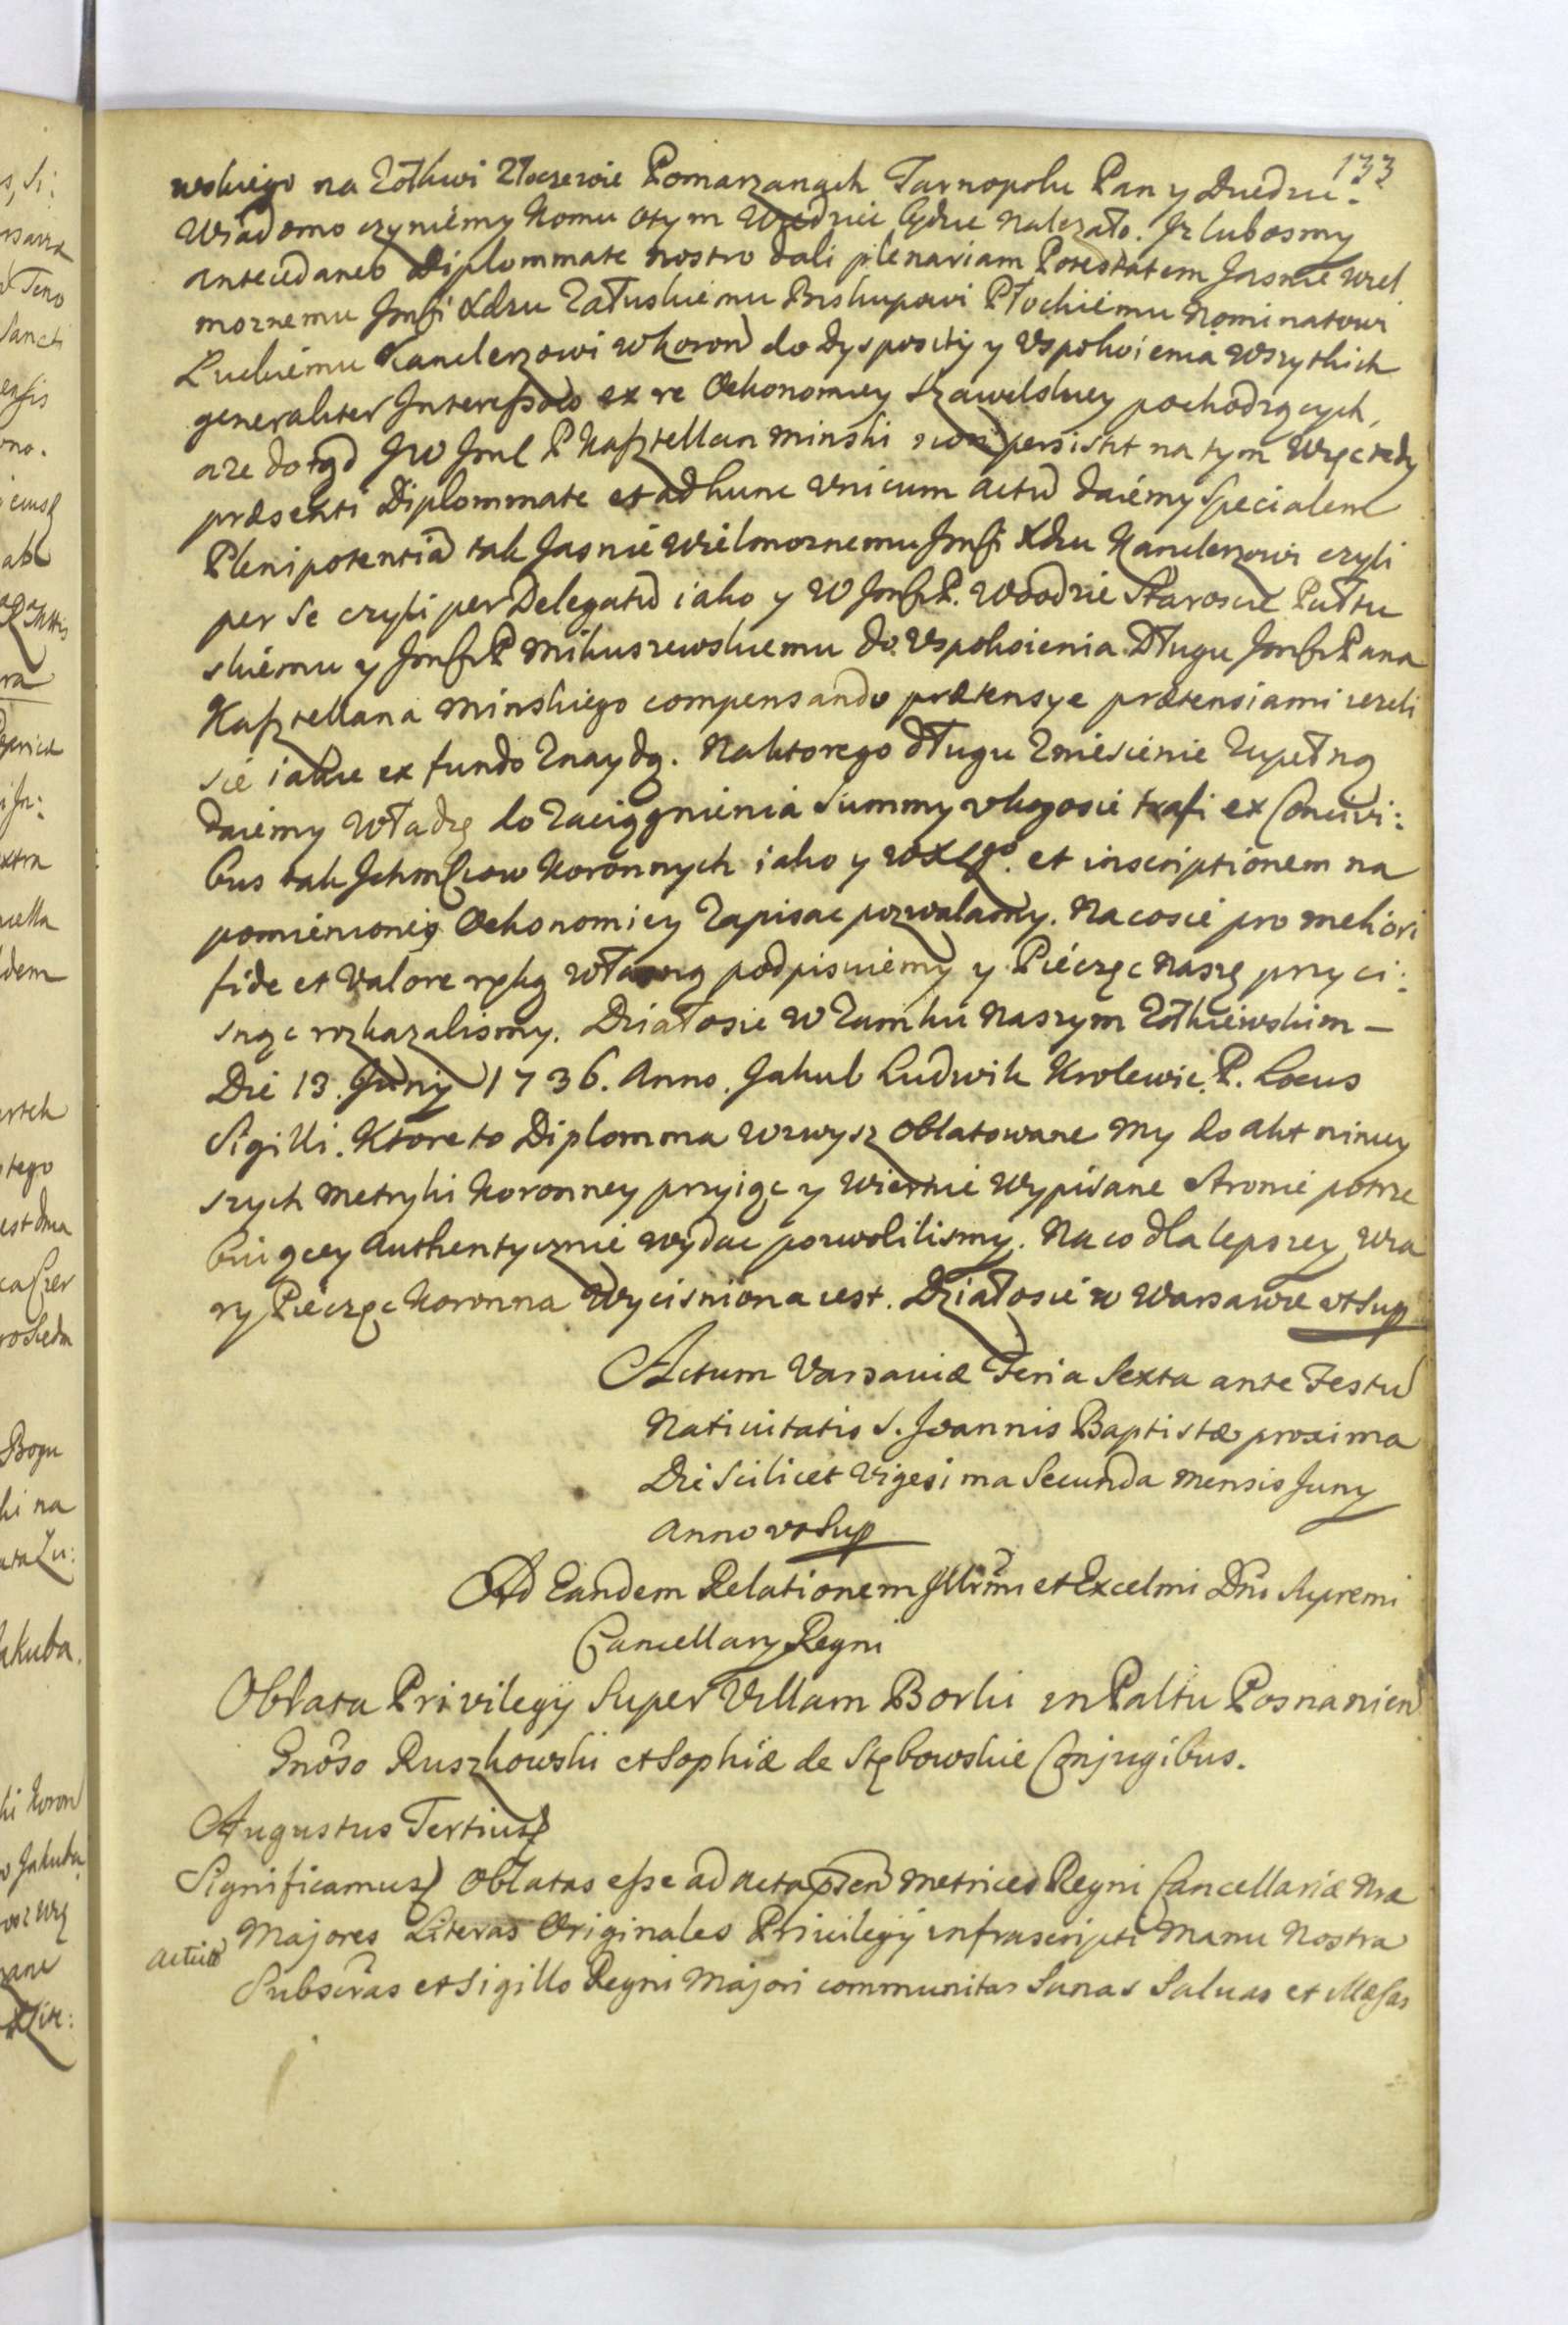 133
wskiego na Zołkwi Złoczewie Pomarzanach Tarnopolu Pan y Dziedzic.
Wiadomo czyniemy komu otym Wiedziec będzie nalezało. Jz lubosmy
antecedaneo Diplommate nostro dali plenariam Potestatem Jasnie Wiel
moznemu Jmści Xdzu Załuskiemu Biskupowi Płockiemu Nominatowi
Łuckiemu Kanclerzowi W Koron do dyspositÿ y Uspokoienia Wszytkich
generaliter Jnteressow ex re Oekonomiey Szawelskiey pochodzących,
aze dotąd JW Jmć P Kasztellan Minski non persistit na tym Więc tedy
præsenti Diplommate et ad hunc unicum actũ daiemy Specialem
Plenipotentiã tak Jasnie Wielmoznemu Jmści Xdzu Kanclerzowi czyli
per se czyli per Delegatũ iako y W Jmści P. Woodzie Staroscie Pułtu
skiemu y Jmści P Mikuszewskiemu do Uspokoienia Długu Jmści Pana
Kasztellana Minskiego compensando prætensye prætensiami iezeli
sie iakie ex fundo Znaydą. Naktorego długu Zniesienie Zupełną
daiemy Władzę do Zaciągnienia Summy u kogosie trafi ex Concivi:
bus tak Jchmściow Koronnych iako y WXLgo. et inscriptionem na
pomienioney Oekonomiey Zapisac pozwalamy. Nacosie pro meliori
fide et Valore ręką Własną podpisuiemy y Pieczęc Naszę przyci:
snąc rozkazalismy. Działosie W Zamku Naszym Zołkiewskim —
Die 13. Junÿ 1736. Anno. Jakub Ludwik Krolewic. P. Locus
Sigilli. Ktore to Diplomma Wzwysz oblatowane My do akt niniey
szych Metryki Koronney przyiąc y Wiernie Wypisane Stronie potrze
buiącey Authentycznie Wydac pozwolilismy. Naco dla lepszey Wia
ry Pieczęc Koronna Wycisniona iest. Działosie w Warszawie ut Sup
Actum Varsaviæ Feria Sexta ante Festũ
Nativitatis S. Joannis Baptistæ proxima
Die Scilicet Vigesima Secunda Mensis Juny
Anno ut Sup
Ad Eandem Relationem Jllrm̃i et Excelmi Dñi Supremi
Cancellary Regni
Oblata Privilegÿ Super Villam Borki in Paltu Posnanien
Gnõso Ruszkowski et Sophiæ de Stębowskie Conjugibus.
Augustus Tertius
Significamus Oblatas esse ad Acta p̃sen Metrices Regni Cancellariæ Nræ
Majores Literas Originales Privilegÿ infrascripti Manu Nostra
actũ
Subscr̃as et Sigillo Regni Majori communitas Sanas Salvas et Jllæsas